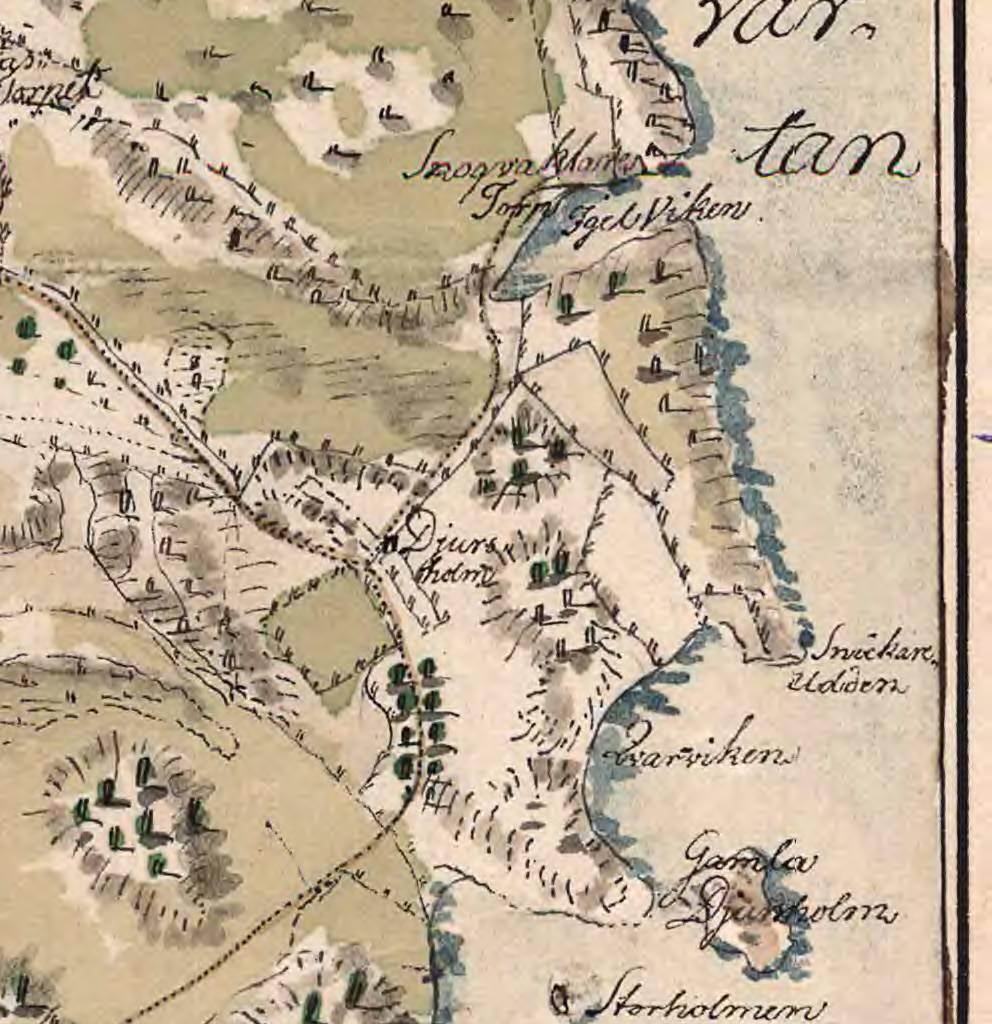 Vär-
tan
Torpet
Smoqvaklare
Torp
Igel Viken.
Djurs
holm
Snickare
Udden
Qvarviken
Gamla
Djursholm
Storholmen